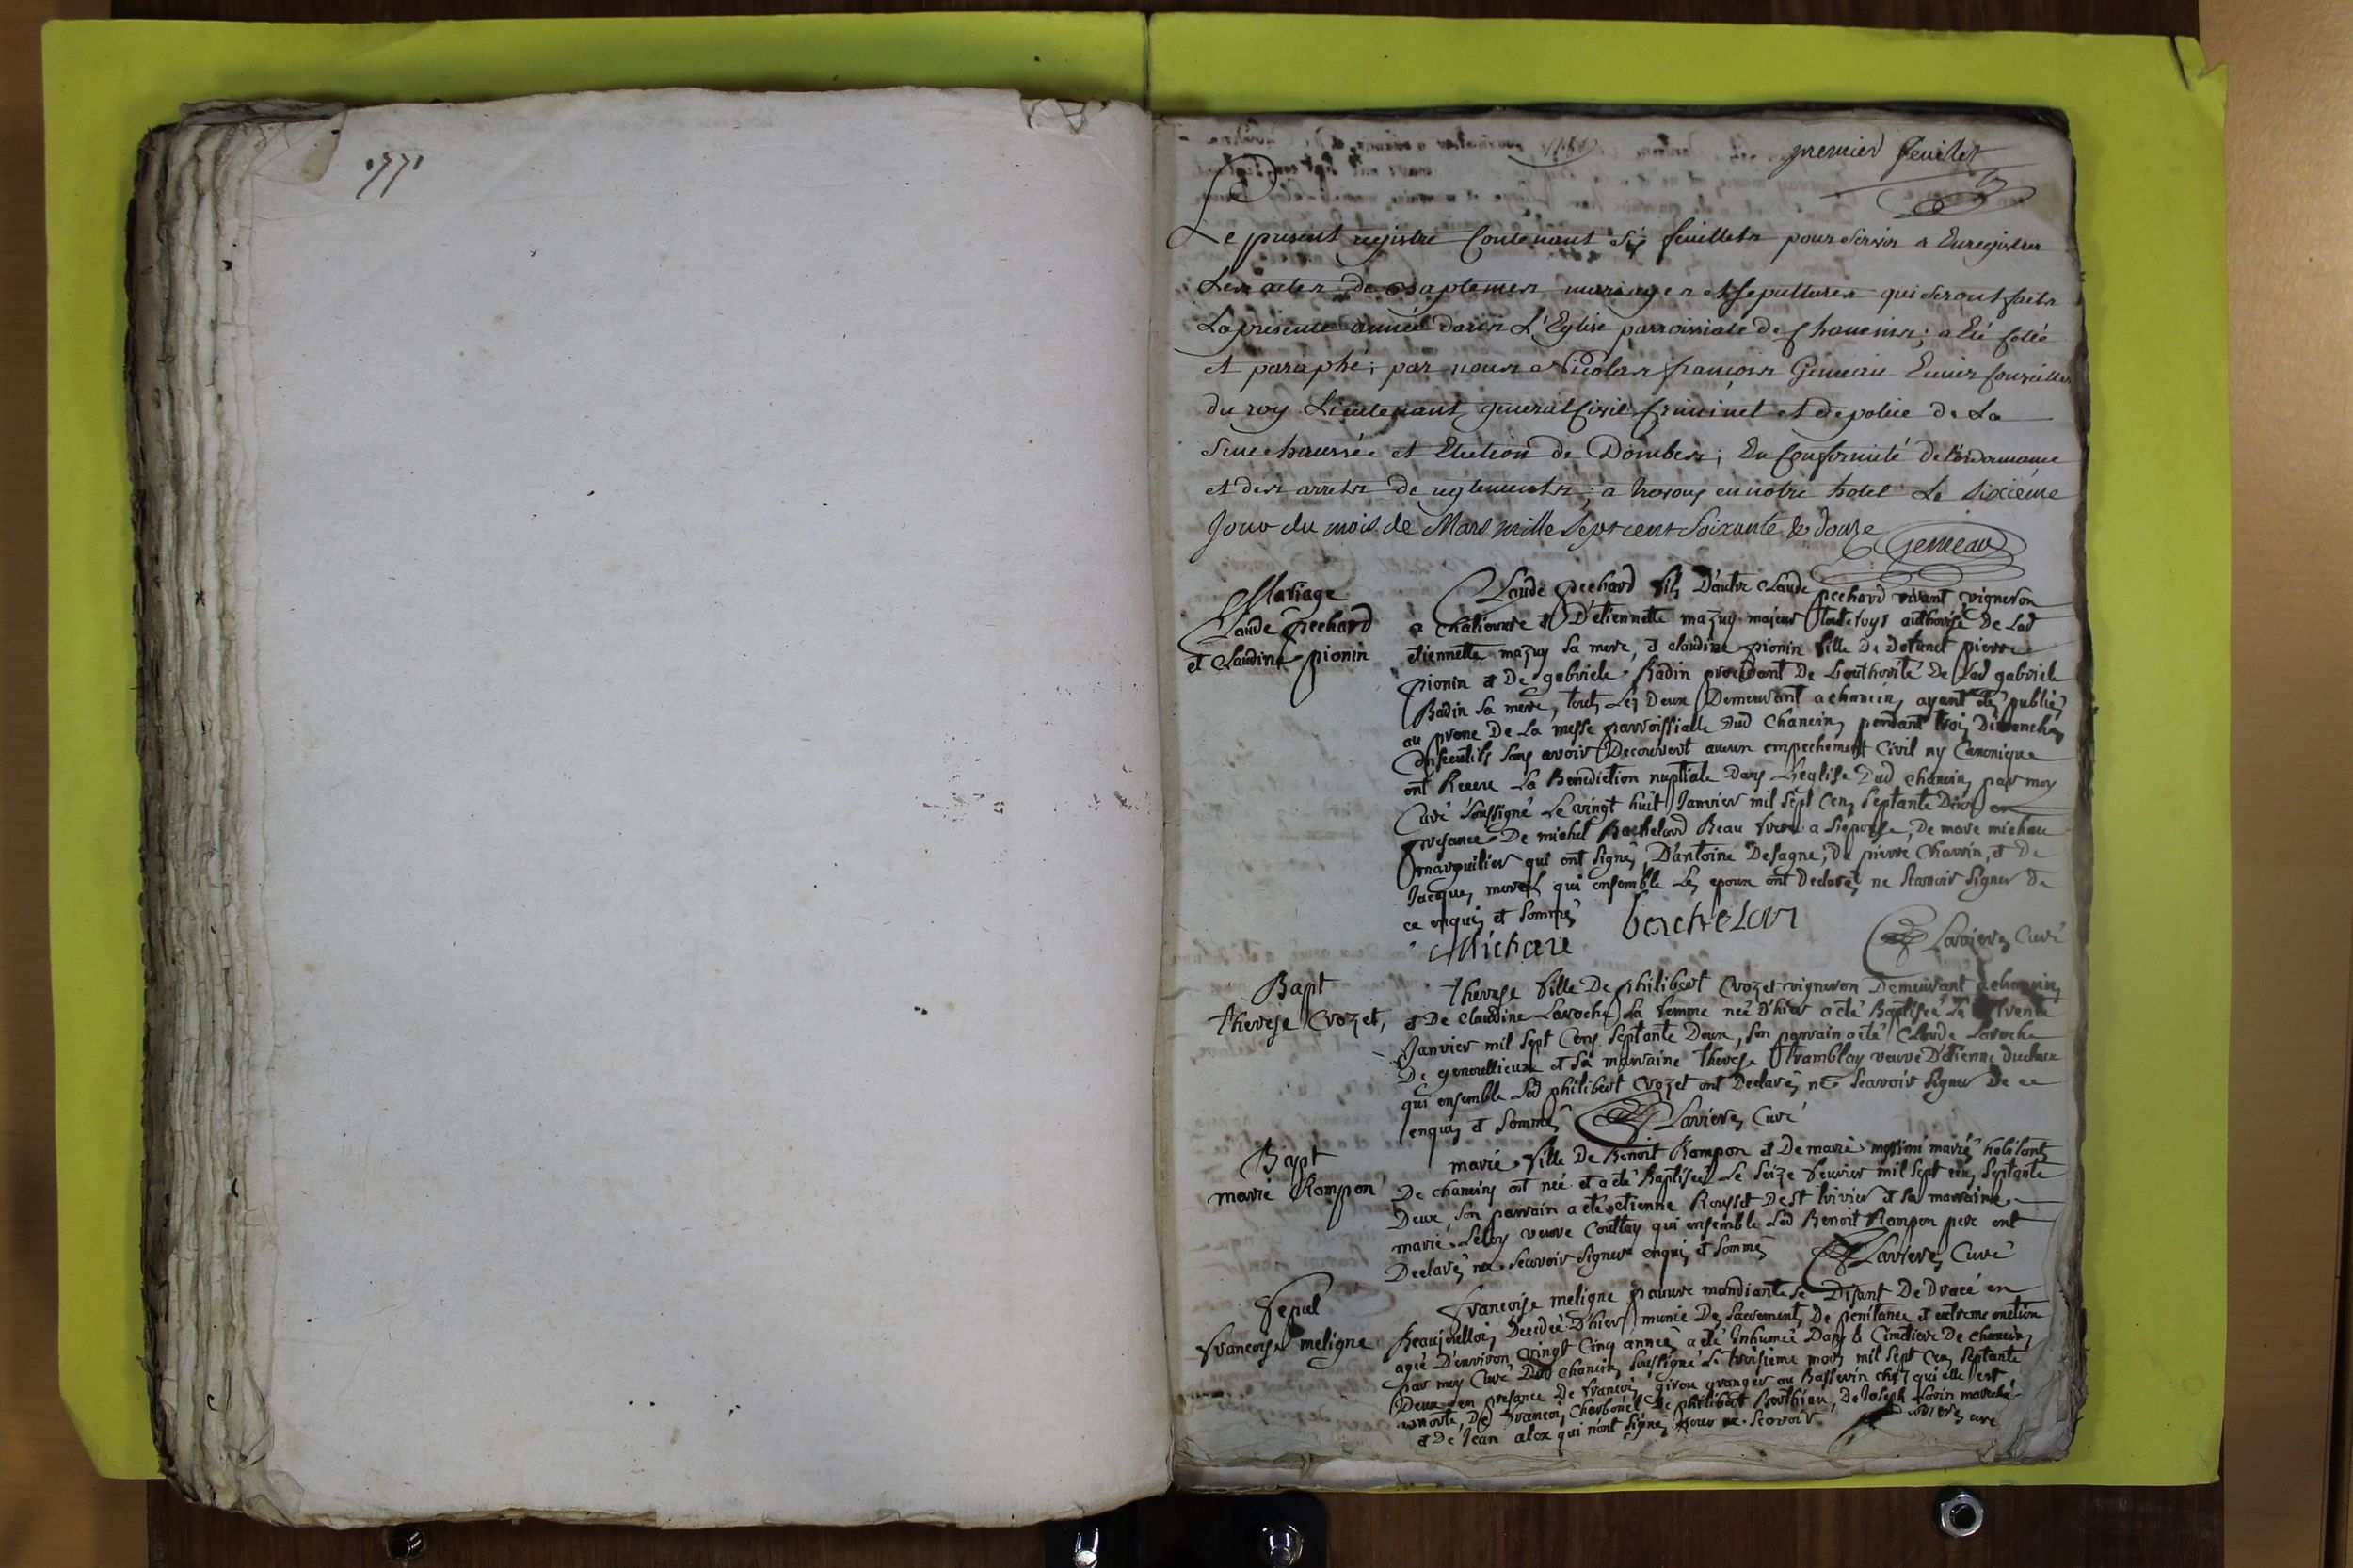 1771
premier feuillet
Le present registre Contenant six feuillets pour servir a Enregistrer
Les actes de Baptemes mariages et sepultures qui seront faits
La presente année dans L'Eglise parroissiale de Chaneins; a Eté Cotté
et paraphé; par nous Nicolas françois Gemeau Ecuier Conseiller
du roy Lieutenant general Civil Criminel et de police de La
Senechaussée et Election de Dombes; En Conformité de l'ordonnance
et des arrets de reglements; a trevoux en notre hotel Le Sixieme
Jour du mois de Mars mille sept cent soixante & douze Gemeau
Mariage
Claude pechard
et Claudine pionin
Claude pechard fils D'autre Claude pechard vivant vigneron
a Chalionvre et D'etiennette mazuy majeur toutefoys authorisé De Lad
etiennette mazuy sa mere, et claudine pionin fille De Defunct pierre
pionin et De gabriele Badin procedant De L'authorité De Lad gabriele
Badin sa mere, touts Les Deux Demeurant a chaneins ayant etés publiés
au prone De La messe parroissialle Dud Chaneins pendant trois Dimanches
consecutifs sans avoir Decouvert aucun empechement Civil ny Canonique
ont Receu La Benediction nuptiale Dans L'eglise Dud chaneins par moy
Curé soussigné Le vingt huit Janvier mil sept Cens septante Deux en
presence De michel Bachelard Beau frere a L'epouse, De marc michau
marguilier qui ont signés, D'antoine Desagne, De pierre Charvin, et De
Jacques morel qui ensemble Les epoux ont Declarés ne scavoir signer De
ce enquis et sommés
Michau bachelar
Lavieres Curé
Bapt
therese Crozet,
therese fille De philibert Crozet vigneron Demeurant a chaneins
et De Claudine Laroche sa femme née D'hier a eté Baptisée Le trente
Janvier mil sept Cens septante Deux, son parrain a eté Claude Laroche
De genouillieux et sa marraine therese tramblay veuve D'etienne
qui ensemble Led philibert Crozet ont Declarés ne scavoir signer De ce
enquis et sommés Lavieres Curé
Bapt
marie Rampon
marie fille De Benoit Rampon et De marie mariés habitants
De chaneins est née et a eté Baptisée Le seize fevrier mil sept cens septante
Deux, son parrain a eté etienne Rousset De st trivier et sa marraine
marie Leroy veuve qui ensemble Led Benoit Rampon pere ont
Declarés ne scavoir signer enquis et sommés Lavieres Curé
Sepul
francoise meligne
francoise meligne pauvre mandiante se Disant De Dracé en
Beaujollois Decedée D'hier munie Des sacrements De penitance et extreme onction
agée D'environ vingt Cinq années a eté inhumée Dans le Cimetiere De chaneins
par moy Curé Dud chaneins soussigné Le troisieme mars mil sept Cens septante
Deux en presance De francois girou granger au Basservin chez qui elle est
morte, De francois Charbonet De philibert Berthieu, De Joseph Lorin
et De Jean alex qui n'ont signé pour ne scavoir Lavieres curé